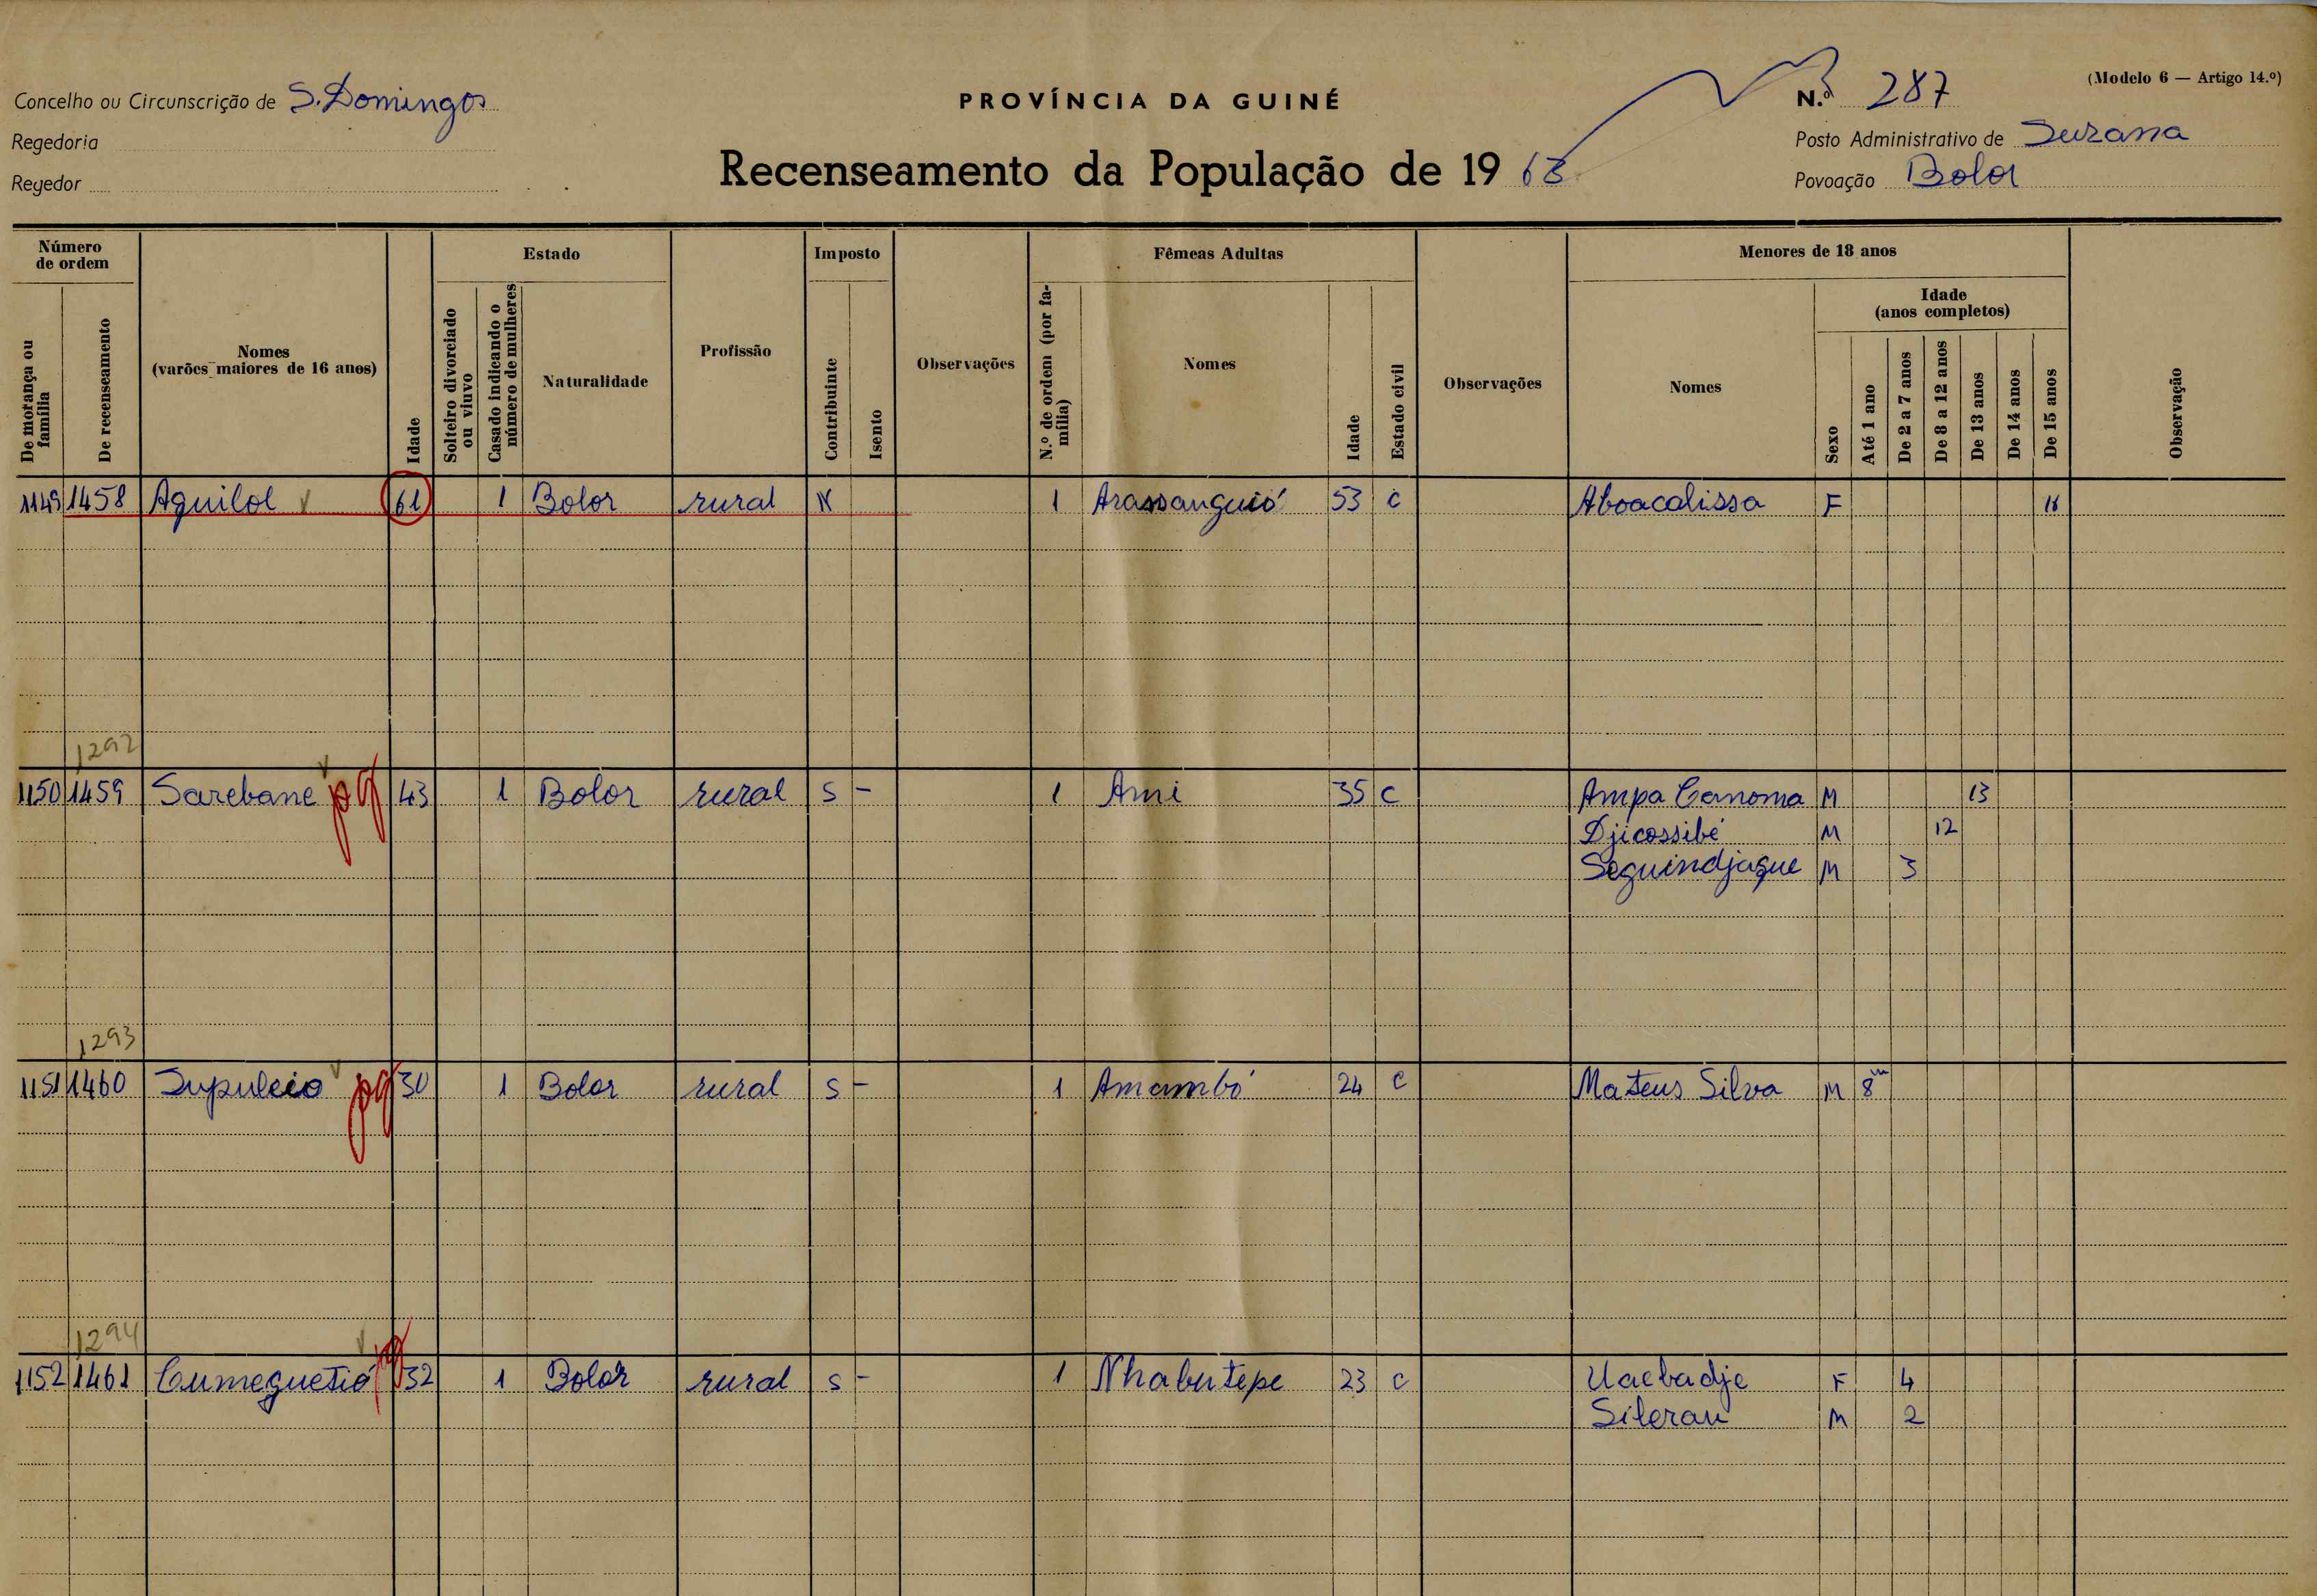 (Modelo 6 — Artigo 14.º)
Concelho ou Circunscrição de S. Domingos
PROVÍNCIA DA GUINÉ
N.º 287
Regedoria
Posto Administrativo de Suzana
Recenseamento da População de 1963
Regedor
Povoação Bolor
Número de ordem
De morança ou família
De recenseamento
Nomes
(varões maiores de 16 anos)
Idade
Estado
Solteiro divorciado ou viuvo
Casado indicando o número de mulheres
Naturalidade
Profissão
Imposto
Contribuinte
Isento
Observações
Fêmeas Adultas
N.º de ordem (por família)
Nomes
Idade
Estado civil
Observações
Menores de 18 anos
Nomes
Idade
(anos completos)
Sexo
Até 1 ano
De 2 a 7 anos
De 8 a 12 anos
De 13 anos
De 14 anos
De 15 anos
Observação
1149 1458 Aquilol 61 1 Bolor rural N 1 Arassanguió 53 C Aboacalissa F 16
1292
1150 1459 Sarebane pg 43 1 Bolor rural S - 1 Ami 35 C Ampa Canoma M 13
Djicossibé M 12
Seguindjaque M 3
1293
1151 1460 Jupuleio pg 30 1 Bolor rural S - 1 Amambó 24 C Mateus Silva M 8m
1294
1152 1461 Cumeguetió pg 32 1 Bolor rural S - 1 Nhabutepe 23 C Uaebadje F 4
Sileran M 2